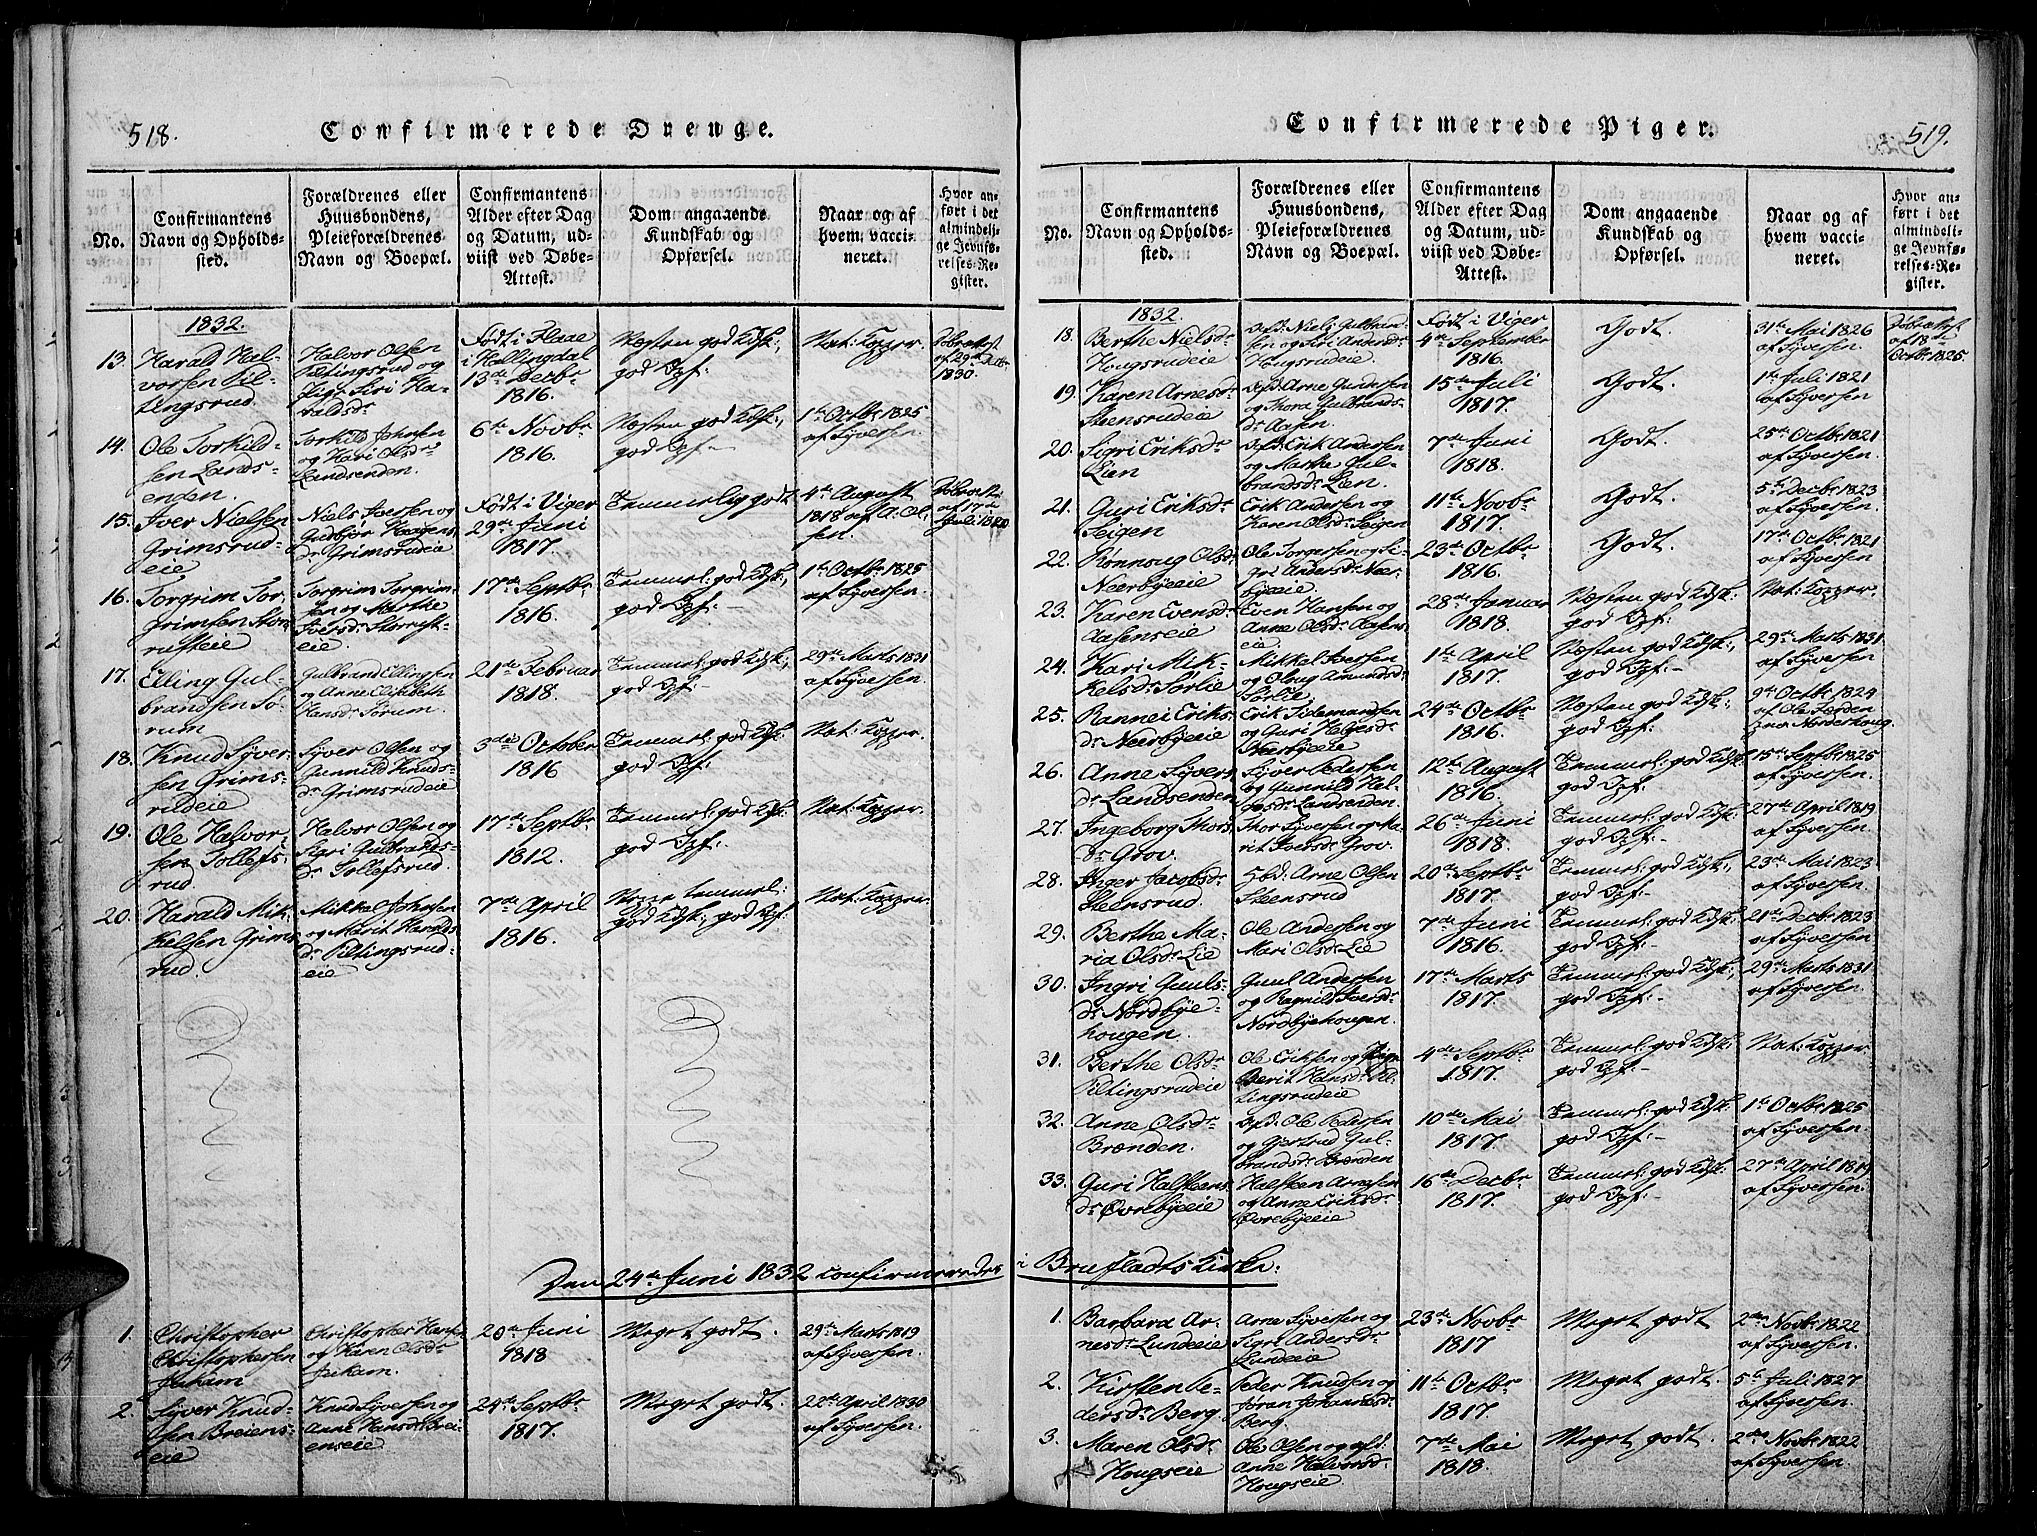 518.
Confirmerede Drenge.
No.
Confirmantens
Navn og Opholds-
sted.
Forældrenes eller
Huusbondens,
Pleieforældrenes
Navn og Boepæl.
Confirmantens
Alder efter Dag
og Datum, ud-
viist ved Døbe-
Attest.
Dom angaaende
Kundskab og
Opførsel.
Naar og af
hvem vacci-
neret.
Hvor an-
ført i det
almindeli-
ge Jevnfø-
relses-Re-
gister.
1832.
13. Harald Hal-
vorsen Pil-
tingsrud.
Halvor Olsen
Piltingsrud og
Pige Siri Ha-
raldsdr
Født i Flaae
i Hallingdal
13de Decbr
1816.
Næsten god Kdsk:,
god Opf:
Nat: Kopper.
Døbeattest
af 29de
1830.
14. Ole Torkild-
sen Lands-
enden.
Torkild Johnsen
og Kari Olsdr
Landsenden.
6te Novbr
1816.
Næsten god Kdsk:,
god Opf:-
1ste Octbr 1825
af Syversen.
15. Iver Nielsen
Grimsrud-
eie
Niels Iversen og
Gudbjør Haagens-
dr Grimsrudeie
Født i Viger
29de Juni
1817.
Temmerlig godt.
4de August
1818 af A. Ol-
sen.
Døbeatt:
af 17de
Juli 1820
16. Torgrim Tor-
grimsen Stor-
rusteie
Torgrim Torgrim-
sen og Marthe
Iversdr Storrust-
eie.
17de Septbr
1816.
Temmel: god Kdsk:,
god Opf:-
1ste Octbr 1825
af Syversen.
17. Elling Gul-
brandsen Sø-
rum
Gulbrand Ellingsen
og Anne Elisabeth
Hansdr Sørum.
21de Februar
1818.
Temmel: god Kdsk:,
god Opf:-
29de Marts 1831
af Syversen.
18. Knud Syver-
sen Grims-
rudeie
Syver Olsen og
Gunnild Knuds-
dr Grimsrudeie
3die October
1816
Temmel: god Kdsk:
god Opf:
Nat: Kopper.
19. Ole Halvor-
sen Tollefs-
rud.
Halvor Olsen og
Sigri Gulbrands-
dr Tollefsrud.
17de Septbr
1812.
Temmel: god Kdsk:
god Opf:-
Nat: Kopper.
20. Harald Mik-
kelsen Grims-
rud.
Mikkal Johnsen
og Marit Haralds-
dr Piltingsrud-
eie
7de April
1816.
Neppe temmel:
god Kdsk:, god Opf:
Nat: Kopper.
Den 24de Juni 1832 confirmeredes i Brufladts Kirke:
1. Christopher
Christophersen
Juham
Christopher Hans-
og Karen Olsdr
Juham.
20de Juni
1818
Meget godt.
29de Marts 1819
af Syversen.
2. Syver Knud-
sen Breiens-
eie
Knud Syversen og
Anne Hansdr Brei-
enseie
24de Septbr
1817.
Meget godt.
22de April 1830
af Syversen.
519.
Confirmerede Piger.
No.
Confirmantens
Navn og Opholds-
sted.
Forældrenes eller
Huusbondens,
Pleieforældrenes
Navn og Boepæl.
Confirmantens
Alder efter Dag
og Datum, ud-
viist ved Døbe-
Attest.
Dom angaaende
Kundskab og
Opførsel.
Naar og af
hvem vacci-
neret.
Hvor an-
ført i det
almindeli-
ge Jevnfø-
relses-Re-
gister.
1832.
18. Berthe Niels-
Hougsrudeie
Afd: Niels Gulbrand-
sen og Siri Anders-
Hougsrudeie.
Født i Viger
4de September
1816.
Godt.
31te Mai 1826
af Syversen.
Døbeattest
af 18de
Octbr 1825
19. Karen Arnesdr
Steensrudeie
Afd: Arne Gundersen
og Thora Gulbrands-
dr Aasen.
15de Juli
1817.
Godt.
1ste Juli 1821
af Syversen
20. Sigri Eriksdr
Lien
Afd: Erik Andersen
og Marthe Gul-
brandsdr Lien.
7de Juni
1818.
Godt.
25de Octbr 1821
af Syversen.
21. Guri Eriksdr
Leigen
Erik Andersen og
Karen Olsdr Leigen
11te Novbr
1817.
Godt.
5te Decbr 1823
af Syversen.
22. Rønnoug Olsdr
Neerbyeeie
Ole Torgersen og Si-
gri Andersdr Neer-
byeeie
23de Octbr
1816.
Godt.
17de Octbr 1821
af Syversen.
23. Karen Evensdr
Aasenseie
Even Hansen og
Anne Olsdr Aasens-
eie
28de Januar
1818.
Næsten god Kdsk:,
god Opf:-
Nat: Kopper.
24. Kari Mik-
kelsdr Sørlie
Mikkal Iversen
og Oloug Amundsdr
Sørlie
1ste April
1817.
Næsten god Kdsk:,
god Opf:-
29de Marts 1831
af Syversen.
25. Rannei Eriks-
dr Neerbyeeie
Erik Tidemansen
og Guri Helgesdr
Neerbyeeie
24de Octbr
1816.
Næsten god Kdsk:,
god Opf:
9de Octbr 1824
af Ole Færden
Norderhoug.
26. Anne Syvers-
dr Landsenden
Syver Pedersen
og Gunnild Hel-
gesdr Landsenden.
12te August
1816.
Temmel: god Kdsk:
god Opf:
15de Septbr 1825
af Syversen.
27. Ingeborg Thors-
dr Grov.
Thor Syversen og Ma-
rit Iversdr Grov.
26de Juni
1818.
Temmel: god Kdsk:,
god Opf:-
27de April 1819
af Syversen.
28. Inger Jacobsdr
Steensrud.
Hbd: Arne Olsen
Steensrud
20de Septbr
1817.
Temmel: god Kdsk:,
god Opf:-
23de Mai 1823
af Syversen.
29. Berthe Ma-
ria Olsdr Lie
Ole Andersen og
Mari Olsdr Lie
7de Juni
1816.
Temmel: god Kdsk:
god Opf:-
21de Decbr 1823
af Syversen.
30. Ingri Guuls-
dr Nordbye-
hougen.
Guul Andersen
og Ragnild Iversdr
Nordbyehougen.
17de Marts
1817.
Temmel: god Kdsk:,
god Opf:-
29de Marts 1831
af Syversen.
31. Berthe Olsdr
Piltingsrudeie
Ole Eriksen og Pige
Berit Hansdr Pil-
tingsrudeie
4de Septbr
1817.
Temmel: god Kdsk:
god Opf:-
Nat: Kopper.
32. Anne Olsdr
Brænden.
Afd: Ole Pedersen
og Gjertrud Gul-
brandsdr Brænden
10de Mai
1817.
Temmel: god Kdsk:
god Opf:-
1ste Octbr 1825
af Syversen.
33. Guri Halsteens-
dr Øvrebyeeie
Halsteen Arnesen
og Anne Eriksdr
Øvrebyeeie
16de Decbr
1817.
Temmel: god Kdsk:
god Opf:-
27de April 1819
af Syversen.
1. Barbara Ar-
nesdr Lundeeie
Arne Syversen og
Sigri Andersdr
Lundeeie
23de Novbr
1817
Meget godt
2den Novbr 1822
af Syversen.
2. Kirsten Pe-
dersdr Berg.
Peder Knudsen og
Jøran Johannesdr
Berg.
11te Octbr
1817.
Meget godt.
5te Juli 1827
af Syversen.
3. Maren Olsdr
Hougseie
Ole Olsen og afd:
Anne Halvorsdr
Hougseie
7de Mai
1818.
Meget godt.
2den Novbr 1822
af Syversen.